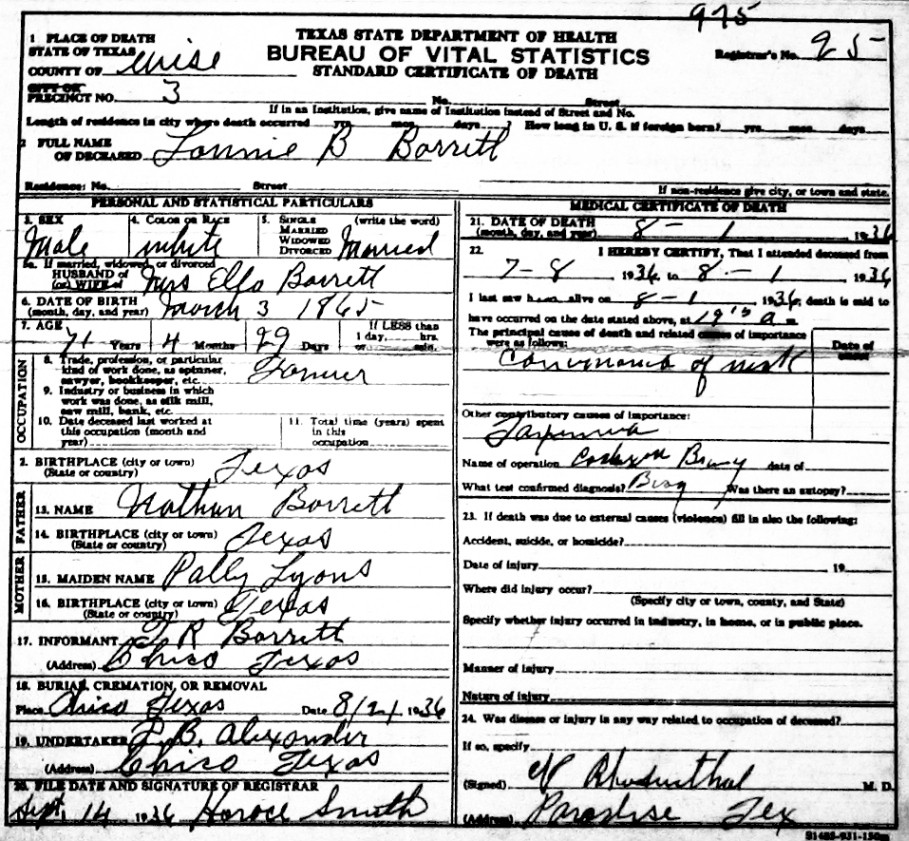 975
TEXAS STATE DEPARTMENT OF HEALTH
BUREAU OF VITAL STATISTICS
STANDARD CERTIFICATE OF DEATH
Registrar's No. 25
1 PLACE OF DEATH
STATE OF TEXAS
COUNTY OF Wise
CITY OR
PRECINCT NO. 3 No. Street
If in an Institution, give name of Institution instead of Street and No.
Length of residence in city where death occurred yrs. mos. days. How long in U. S. if foreign born? yrs. mos. days
2 FULL NAME
OF DECEASED Lonnie B Barrett
Residence: No. Street If non-residence give city, or town and state.
PERSONAL AND STATISTICAL PARTICULARS
3. SEX Male
4. COLOR OR RACE white
5. SINGLE MARRIED WIDOWED DIVORCED (write the word) Married
5a. If married, widowed, or divorced
HUSBAND of
(or) WIFE of Mrs Ella Barrett
6. DATE OF BIRTH
(month, day, and year) March 3 1865
7. AGE 71 Years 4 Months 29 Days If LESS than 1 day, hrs. or min.
OCCUPATION
8. Trade, profession, or particular
kind of work done, as spinner,
sawyer, bookkeeper, etc. Farmer
9. Industry or business in which
work was done, as silk mill,
saw mill, bank, etc.
10. Date deceased last worked at
this occupation (month and
year)
11. Total time (years) spent
in this
occupation
2. BIRTHPLACE (city or town)
(State or country) Texas
FATHER
13. NAME Nathan Barrett
14. BIRTHPLACE (city or town)
(State or country) Texas
MOTHER
15. MAIDEN NAME Pally Lyons
16. BIRTHPLACE (city or town)
(State or country) Texas
17. INFORMANT R Barrett
(Address) Chico Texas
18. BURIAL, CREMATION, OR REMOVAL
Place Chico Texas Date 8/2/ 1936
19. UNDERTAKER L. B. Alexander
(Address) Chico Texas
20. FILE DATE AND SIGNATURE OF REGISTRAR
Sept. 14 1936 Horace Smith
MEDICAL CERTIFICATE OF DEATH
21. DATE OF DEATH
(month, day, and year) 8 - 1 1936
22. I HEREBY CERTIFY, That I attended deceased from
7-8 1936 to 8 - 1 1936
I last saw h alive on 8-1 1936; death is said to
have occurred on the date stated above, at a m
The principal causes of death and related causes of importance
were as follows:
Date of
onset
of neck
Other contributory causes of importance:
Name of operation date of
What test confirmed diagnosis? Was there an autopsy?
23. If death was due to external causes (violence) fill in also the following:
Accident, suicide, or homicide?
Date of injury 19
Where did injury occur?
(Specify city or town, county, and State)
Specify whether injury occurred in industry, in home, or in public place.
Manner of injury
Nature of injury
24. Was disease or injury in any way related to occupation of deceased?
If so, specify
(Signed) M. D.
(Address) Paradise Tex